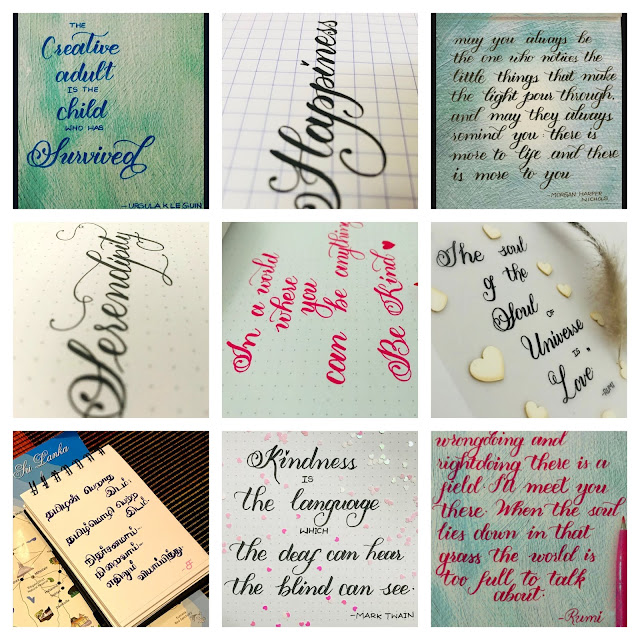 THE
Creative
adult
IS THE
child
WHO HAS
Survived
- URSULA K LE GUIN
Happiness
may you always be
the one who notices the
little things that make
the light pour through.
and may they always
remind you: there is
more to life and there
is more to you
- MORGAN HARPER
NICHOLS
Serendipity
In a world
where
you
can be anything
Be Kind
The soul
of the
Soul OF
Universe
IS
Love
-RUMI
Sri Lanka
தமிழன் பெறாத
இடம்,
தமிழ்மொழி பெற்ற
இடம்.
நிதர்சனமாய்-
நிறைவாய்-
எதிலும்
Kindness
IS
the language
WHICH
the deaf can hear
the blind can see.
- MARK TWAIN
wrongdoing and
rightdoing there is a
field. I'll meet you
there. When the soul
lies down in that
grass the world is
too full to talk
about.
-Rumi